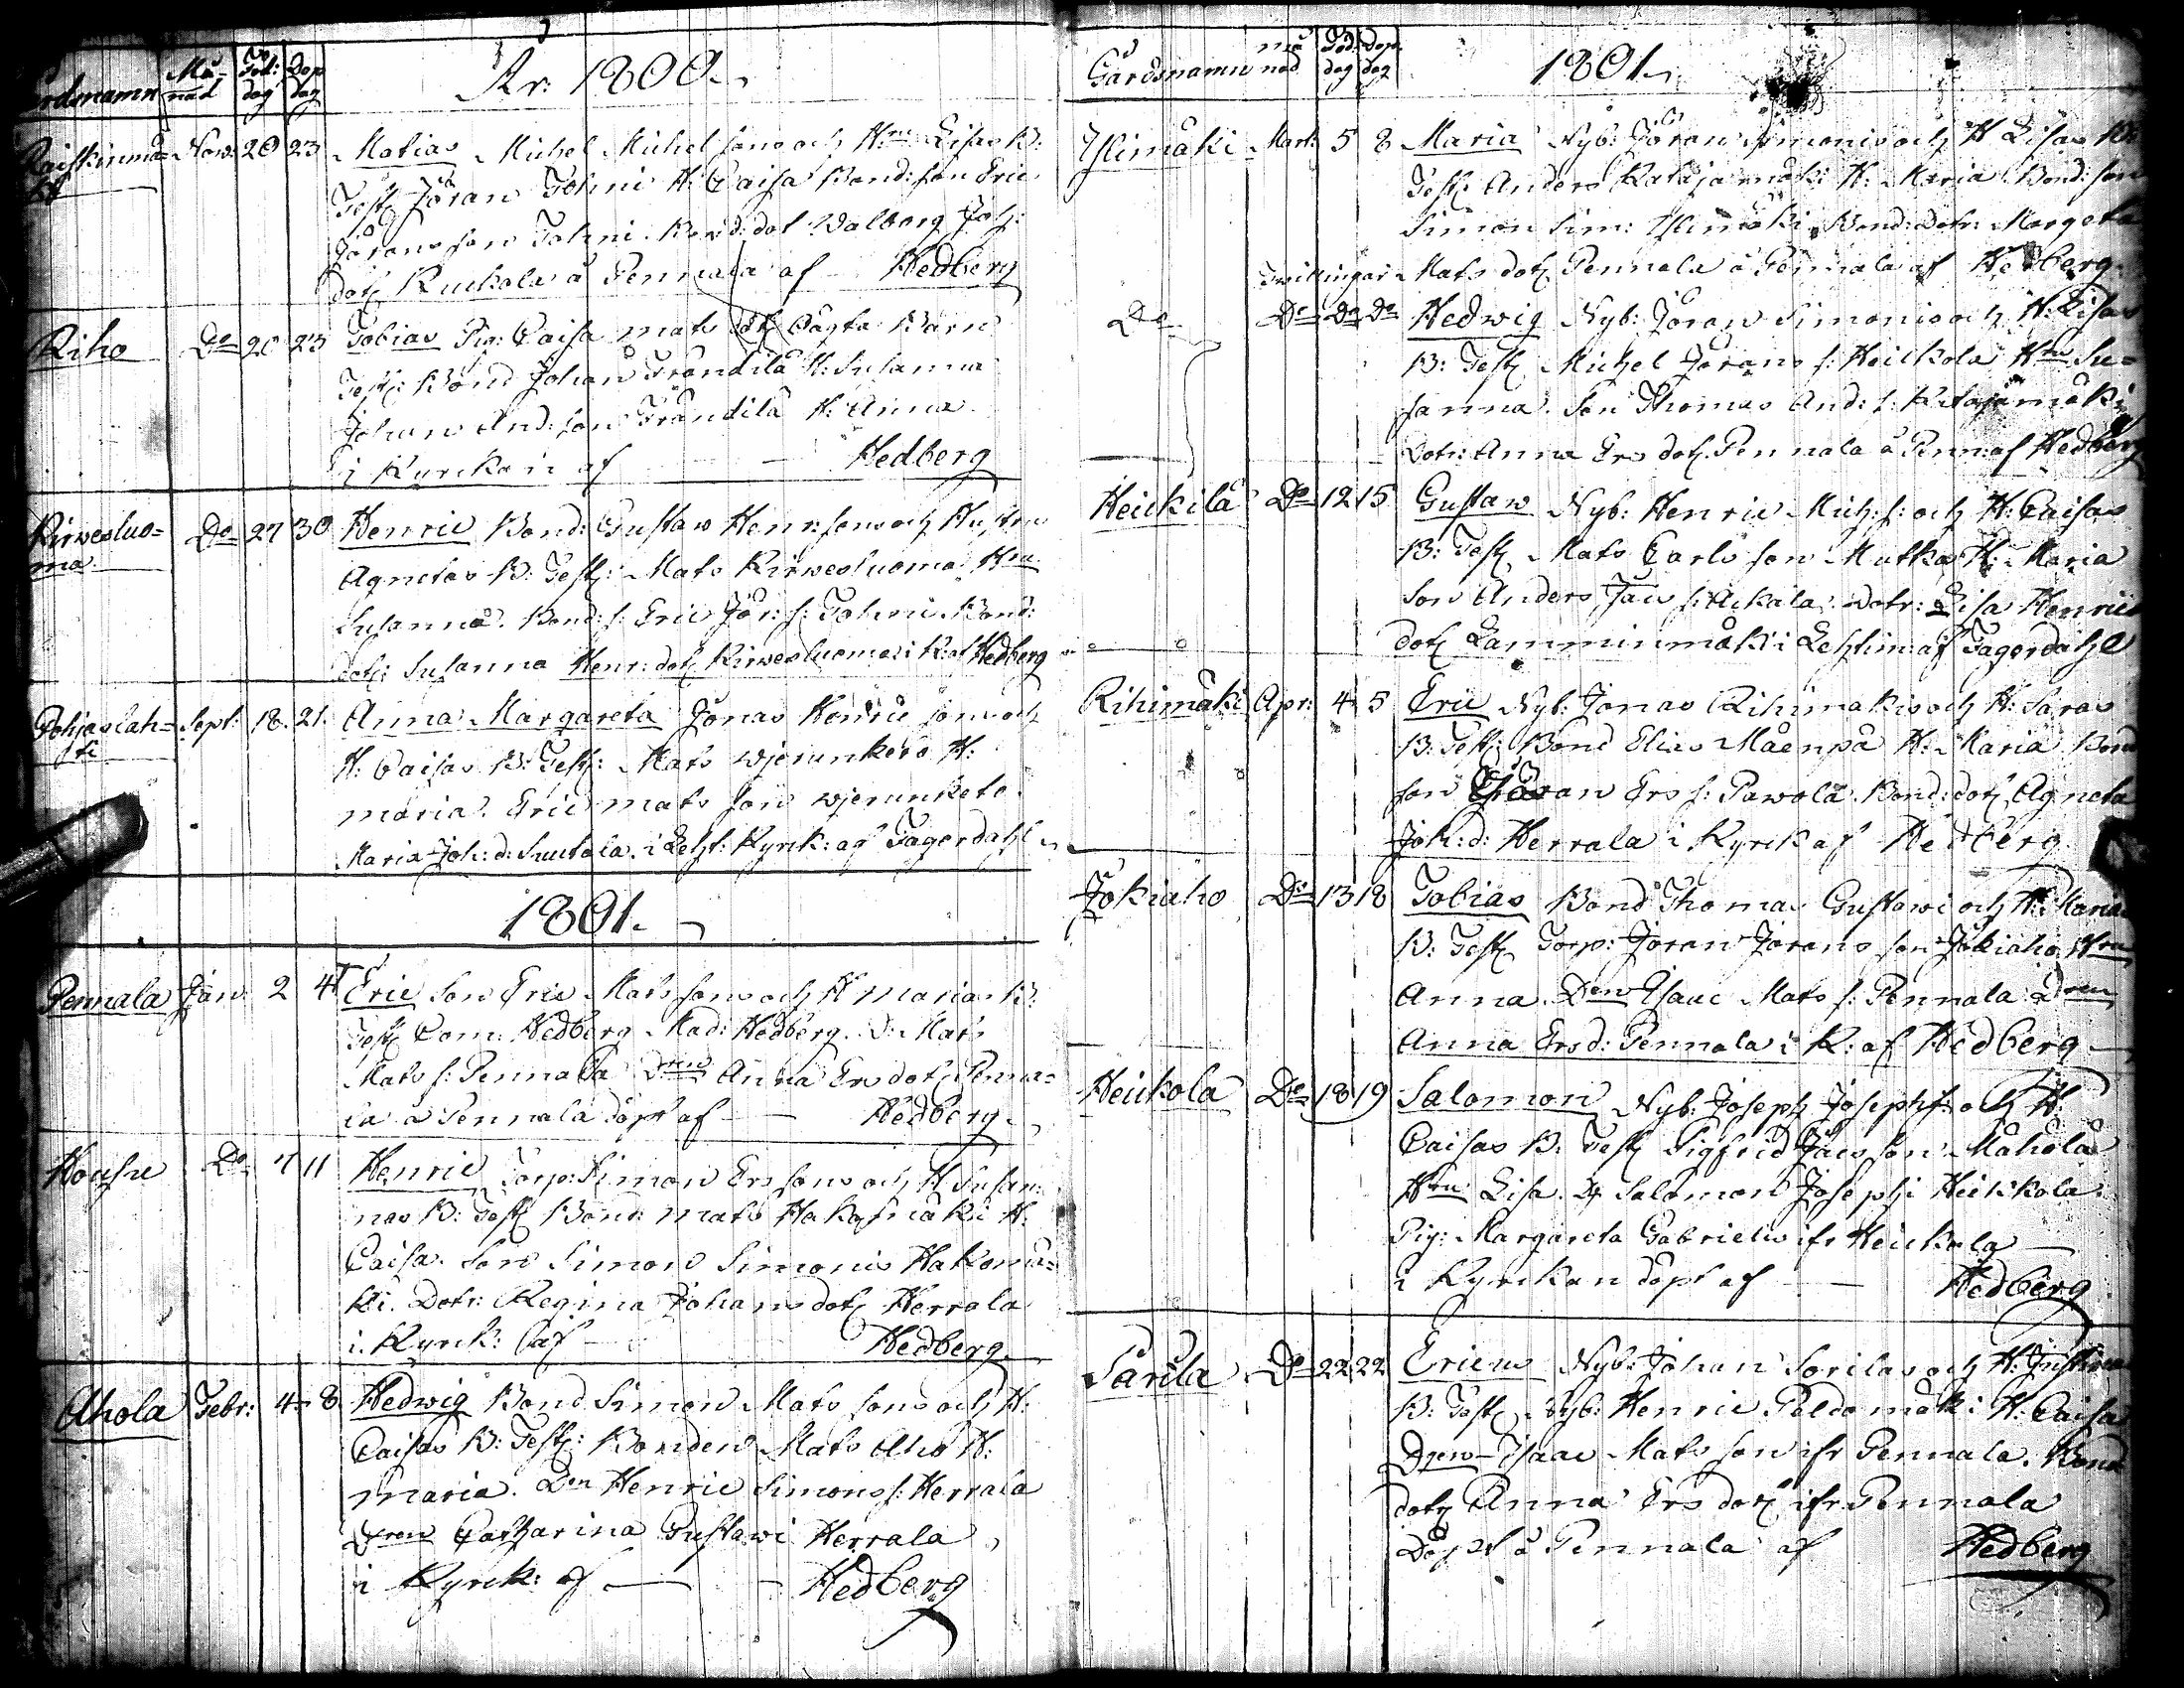 Gårdsnamn Må-nad Föd: dag Döp dag År: 1800.
Raiskinmä- Nov: 20 23 Matias Michel Michelsons och H:ru Lisas B:
ki Test: Jöran Tohni H: Caisa Bond: son Eric
Jöransson Tohni. Bond: dot Walborg Joh:
dot: Ruckala å Pennala af Hedberg
Riho Do 20 23 Tobias Pig: Caisa Mats dot: Oägta Barn
Test: Bond Johan Frändilä H: Susanna
Johan And: son Frändilä H: Anna
i Kyrckan af Hedberg
Kirvesluo- Do 27 30 Henric Bond: Gustaw Henr: sons och Hustru
ma Agnetas B: Test: Mats Kirwesluoma H:ru
Susanna. Bond: s: Eric Jör: s: Tohni. Bond:
dot: Susanna Henr: dot: Kirwesluoma i K: af Hedberg
Pohjaslah- Sept: 18. 21. Anna Margareta Jonas Henric sons och
ti H: Caisas B: Test: Mats Wjerunkero H:
Maria. Eric Mats son Wjerunkero.
Maria Joh: d: Suutala. i Leht: Kyrk: af Fagerdahl
1801.
Pennala Jan: 2 4 Eric son Eric Mats sons och H Marias B:
Test: Com: Hedberg Mad: Hedberg. D: Mats
Mats s: Pennala D:ren Anna Ers dot: Penna-
la å Pennala döpt af Hedberg
Do 7 11 Henric Torp: Simon Ers sons och H Susan-
nas B: Test: Bond: Mats Hakomäki H:
Caisa. Son Simon Simonis Hakomä-
ki. Dotr: Regina Johans dot: Herrala
i Kyrck: af Hedberg
Ahola Febr: 4 8 Hedwig Bond Simon Mats sons och H:
Caisas B: Test: Bonden Mats Aho H:
Maria. D:en Henric Simons s: Herrala
D:ren Catharina Gustawi Herrala
i Kyrck: af Hedberg
Gårdsnamn Månad Föd: dag Döp. dag 1801.
Ylimäki Mart: 5 8 Maria Nyb: Jöran Simonis och H Lisas B:
Test: Anders Katajamäki H: Maria Bond: son
Simon Sim: Ylimäki. Bond: Dotr: Margeta
Twillingar Mats dot: Pennala å Pennala af Hedberg.
Do Do Do Do Hedwig Nyb: Jöran Simonis och H: Lisas
B: Test: Michel Jörans s: Heickola H:ru Su-
sanna. Son Thomas And: s: Katajamäki
Dotr: Anna Ers dot: Pennala å Penn: af Hedberg
Heickilä Do 12 15 Gustaw Nyb: Henric Mich: s: och H: Caisas
B: Test: Mats Carls son Mutka H: Maria
Son Anders Jac s: Ackala. Dotr: Lisa Henrics
dot: Lamminmäki i Lehtim: af Fagerdahl
Rihimäki Apr: 4 5 Eric Nyb: Jonas Rihimäkis och H: Saras
B: Test: Bond Elias Mäenpä H: Maria Bond
son Jöran Ers s: Pawola. Bond: dot: Agneta
Joh: d: Herrala i Kyrck af Hedberg
Jokiaho Do 13 18 Tobias Bond Thomas Gustawi och H: Maria
B: Test: Torp: Jöran Jörans son Jokiaho H:ru
Anna. D:en Isaac Mats s: Pennala D:ren
Anna Ers d: Pennala i K: af Hedberg
Heickola Do 18 19 Salomon Nyb: Joseph Joseph s: och H:
Caisas B: Test: Sigfrid Jacs son Mahola
H:ru Lisa. Salomon Josephi Heickola.
Pig: Margareta Gabrielis ifr Heickola
i Kyrckan döpt af Hedberg
Sarila Do 22 22 Ericus Nyb: Johan Sorilas och H: Justinas
B: Test: Nyb: Henric Peldomäki H: Caisa
Dren Isaac Mats son ifr Pennala. Bond
dotr Anna Ers dot: ifr Pennala
Döpt å Pennala af Hedberg